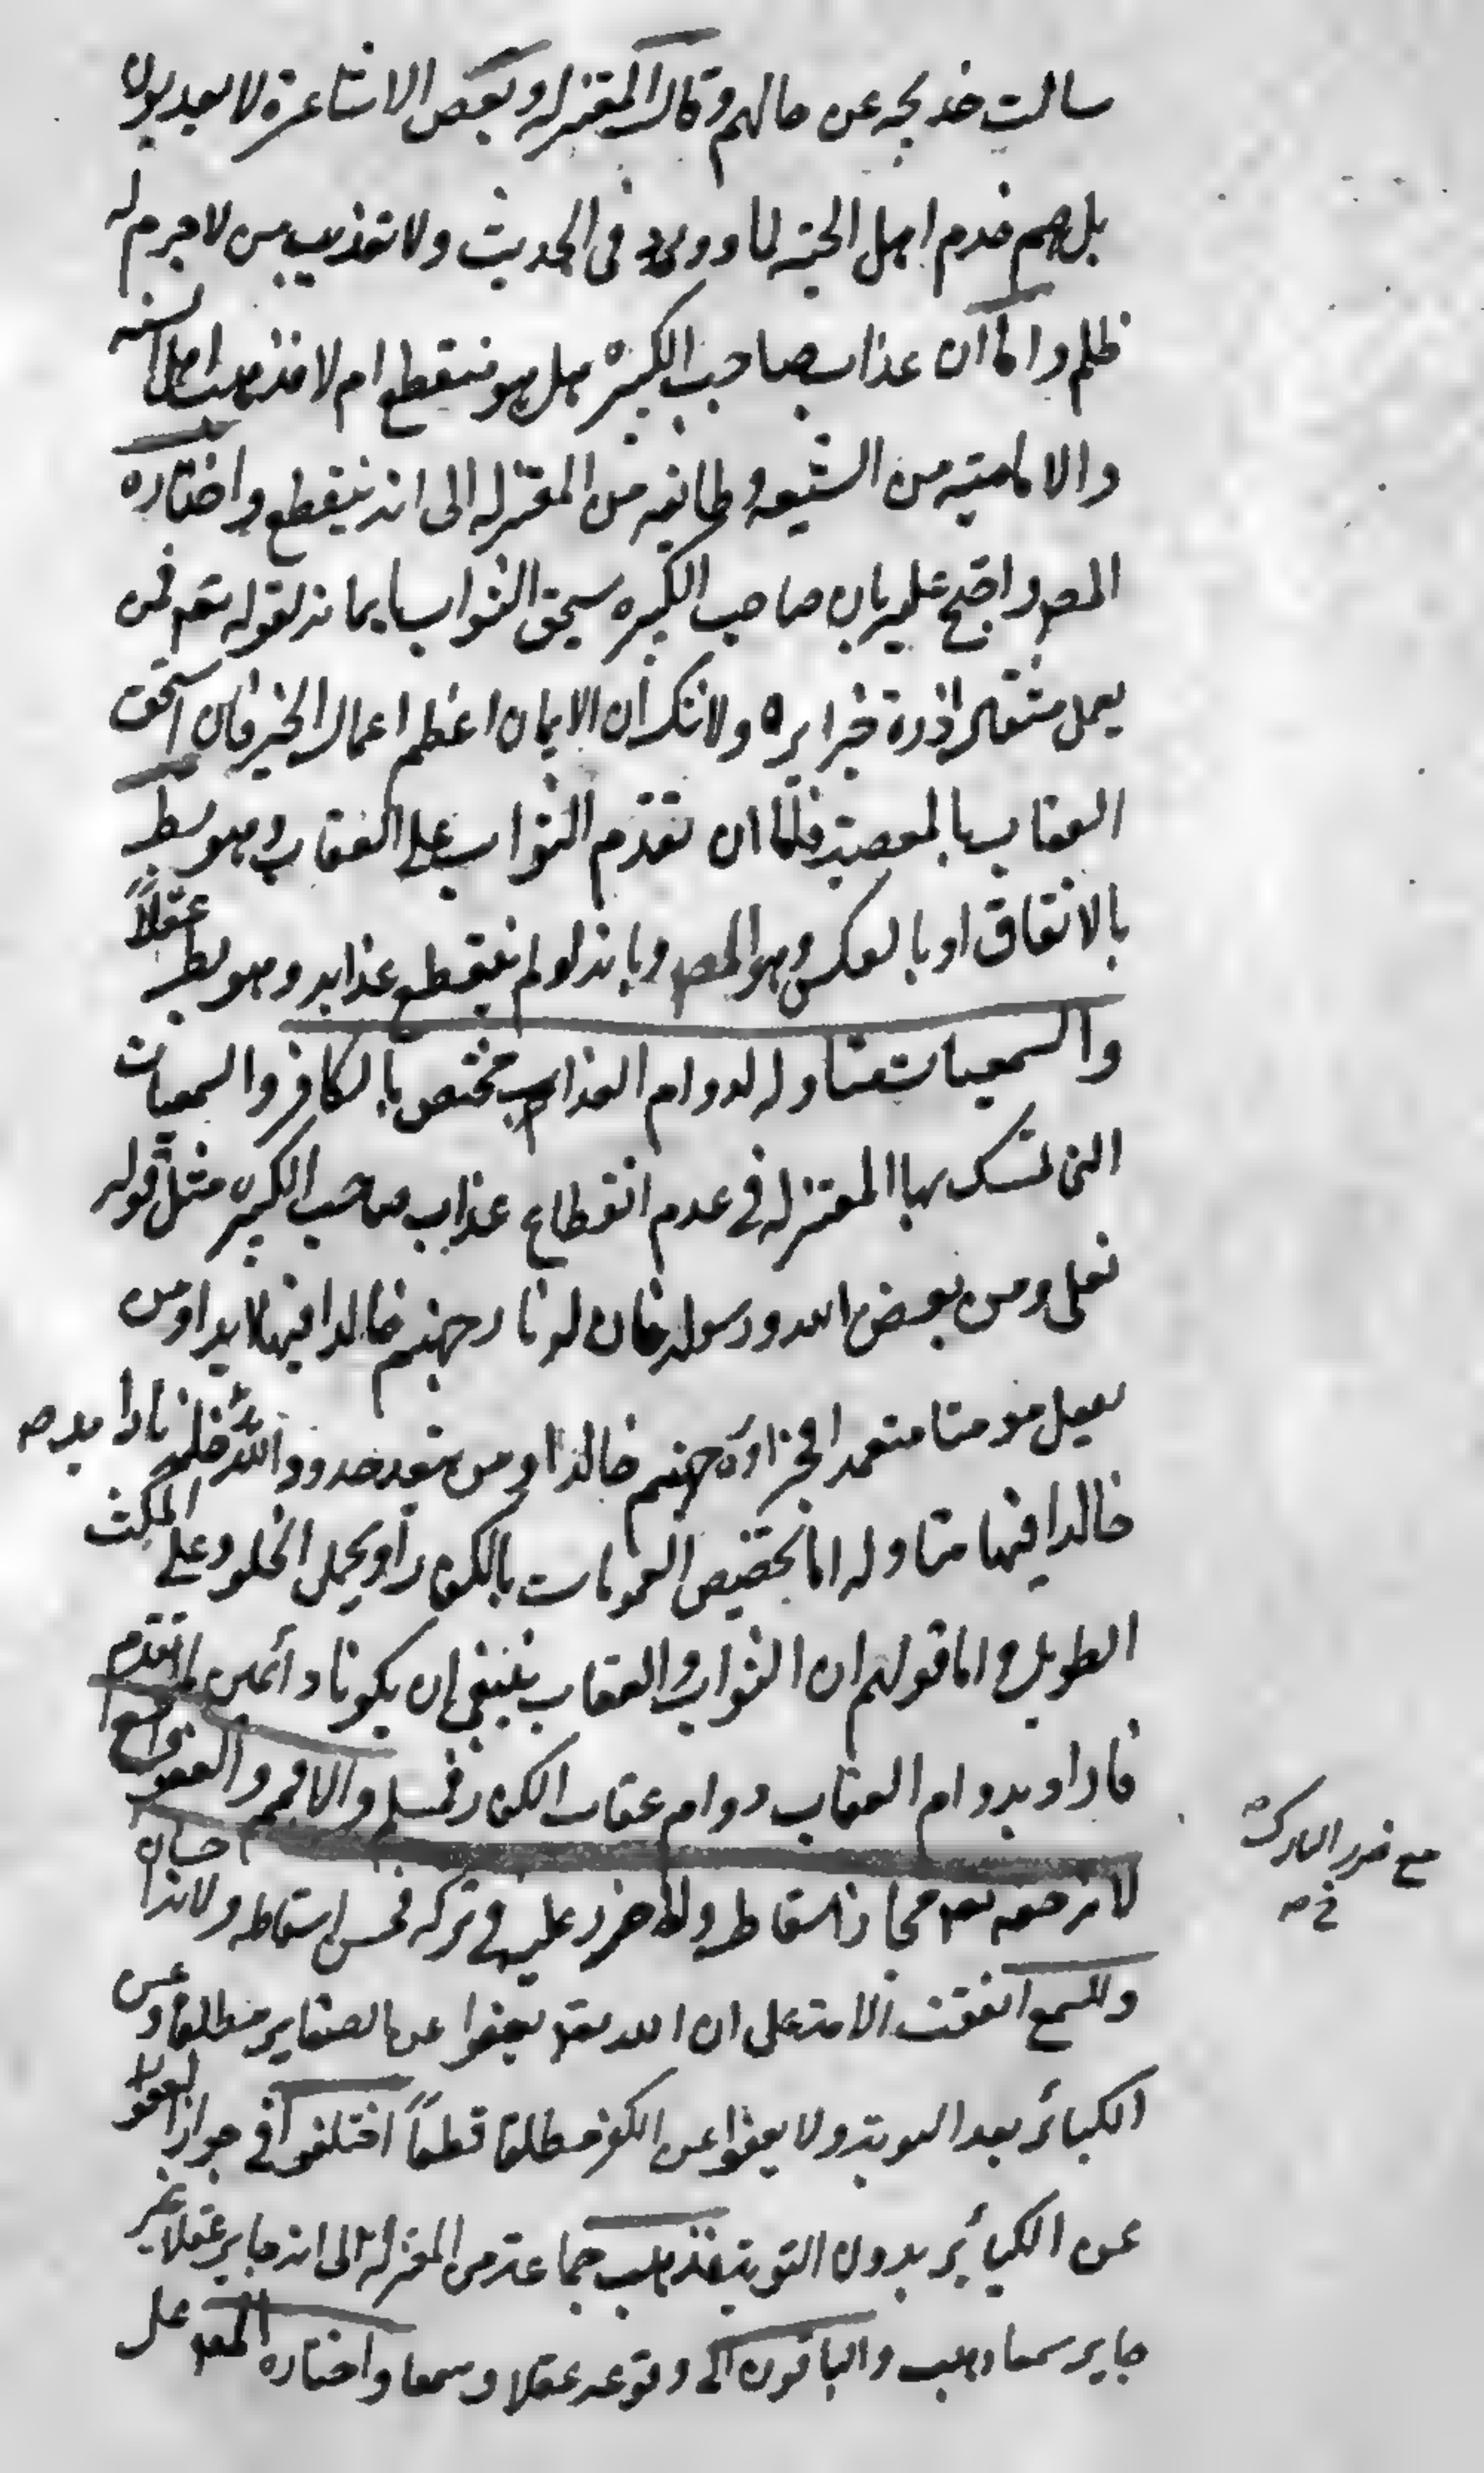 سالت خديجه عن حالهم وقالت المعتزله وبعض الاشاعرة لا يعذبون
بل هم خدم اهل الجنه لما ورد في الحديث ولا تعذيب من لا جرم له
ظلم واما ان عذاب صاحب الكبيرة هل هو منقطع ام لا فذهب اهل السنه
والاماميه من الشيعه وطائفه من المعتزله الى انه ينقطع واختاره
المص واحتج عليه بان صاحب الكبيره يستحق الثواب بايمانه لقوله تعم فمن
يعمل مثقال ذرة خيرا يره ولا شك ان الايمان اعظم اعمال الخير فان استحق
العقاب بالمعصية فاما ان تقدم الثواب على العقاب وهو بط
بالاتفاق او بالعكس وهو المص وبانه لو لم ينقطع عذابه وهو بط عقلاً
والسمعيات متناوله لدوام العذاب مختص بالكافر والسمعيات
التي تمسك بها المعتزله في عدم انقطاع عذاب صاحب الكبيره مثل قوله
تعلى ومن يعص الله ورسوله فان له نار جهنم خالدا فيها ابدا ومن
يقتل مومنا متعمدا فجزاؤه جهنم خالدا ومن يتعد حدود الله يدخله نارا
خالدا فيها متاوله اما بتخصيص العمومات بالكفار او بحمل الخلود على المكث
الطويل واما قولهم ان الثواب والعقاب ينبغي ان يكونا دائمين لما تقدم
فارادو بدوام العقاب دوام عقاب الكفار فمسلم والا فمم والعفو واقع
لانه حقه تعم فجاز اسقاطه ولا ضرر عليه في تركه فحسن اسقاطه ولانه احسان
وللسمع اتفقت الامة على ان الله تعم يعفوا عن الصغاير مطلقا وعن
الكبائر بعد التوبة ولا يعفوا عن الكفر مطلقا قطعاً اختلفوا في جواز العفو
عن الكبائر بدون التوبة فذهب جماعة من المعتزله الى انه جايز عقلا غير
جايز سمعا وذهب والباقون الى وقوعه عقلا وسمعا واختاره المص على
مع ضرر التارك